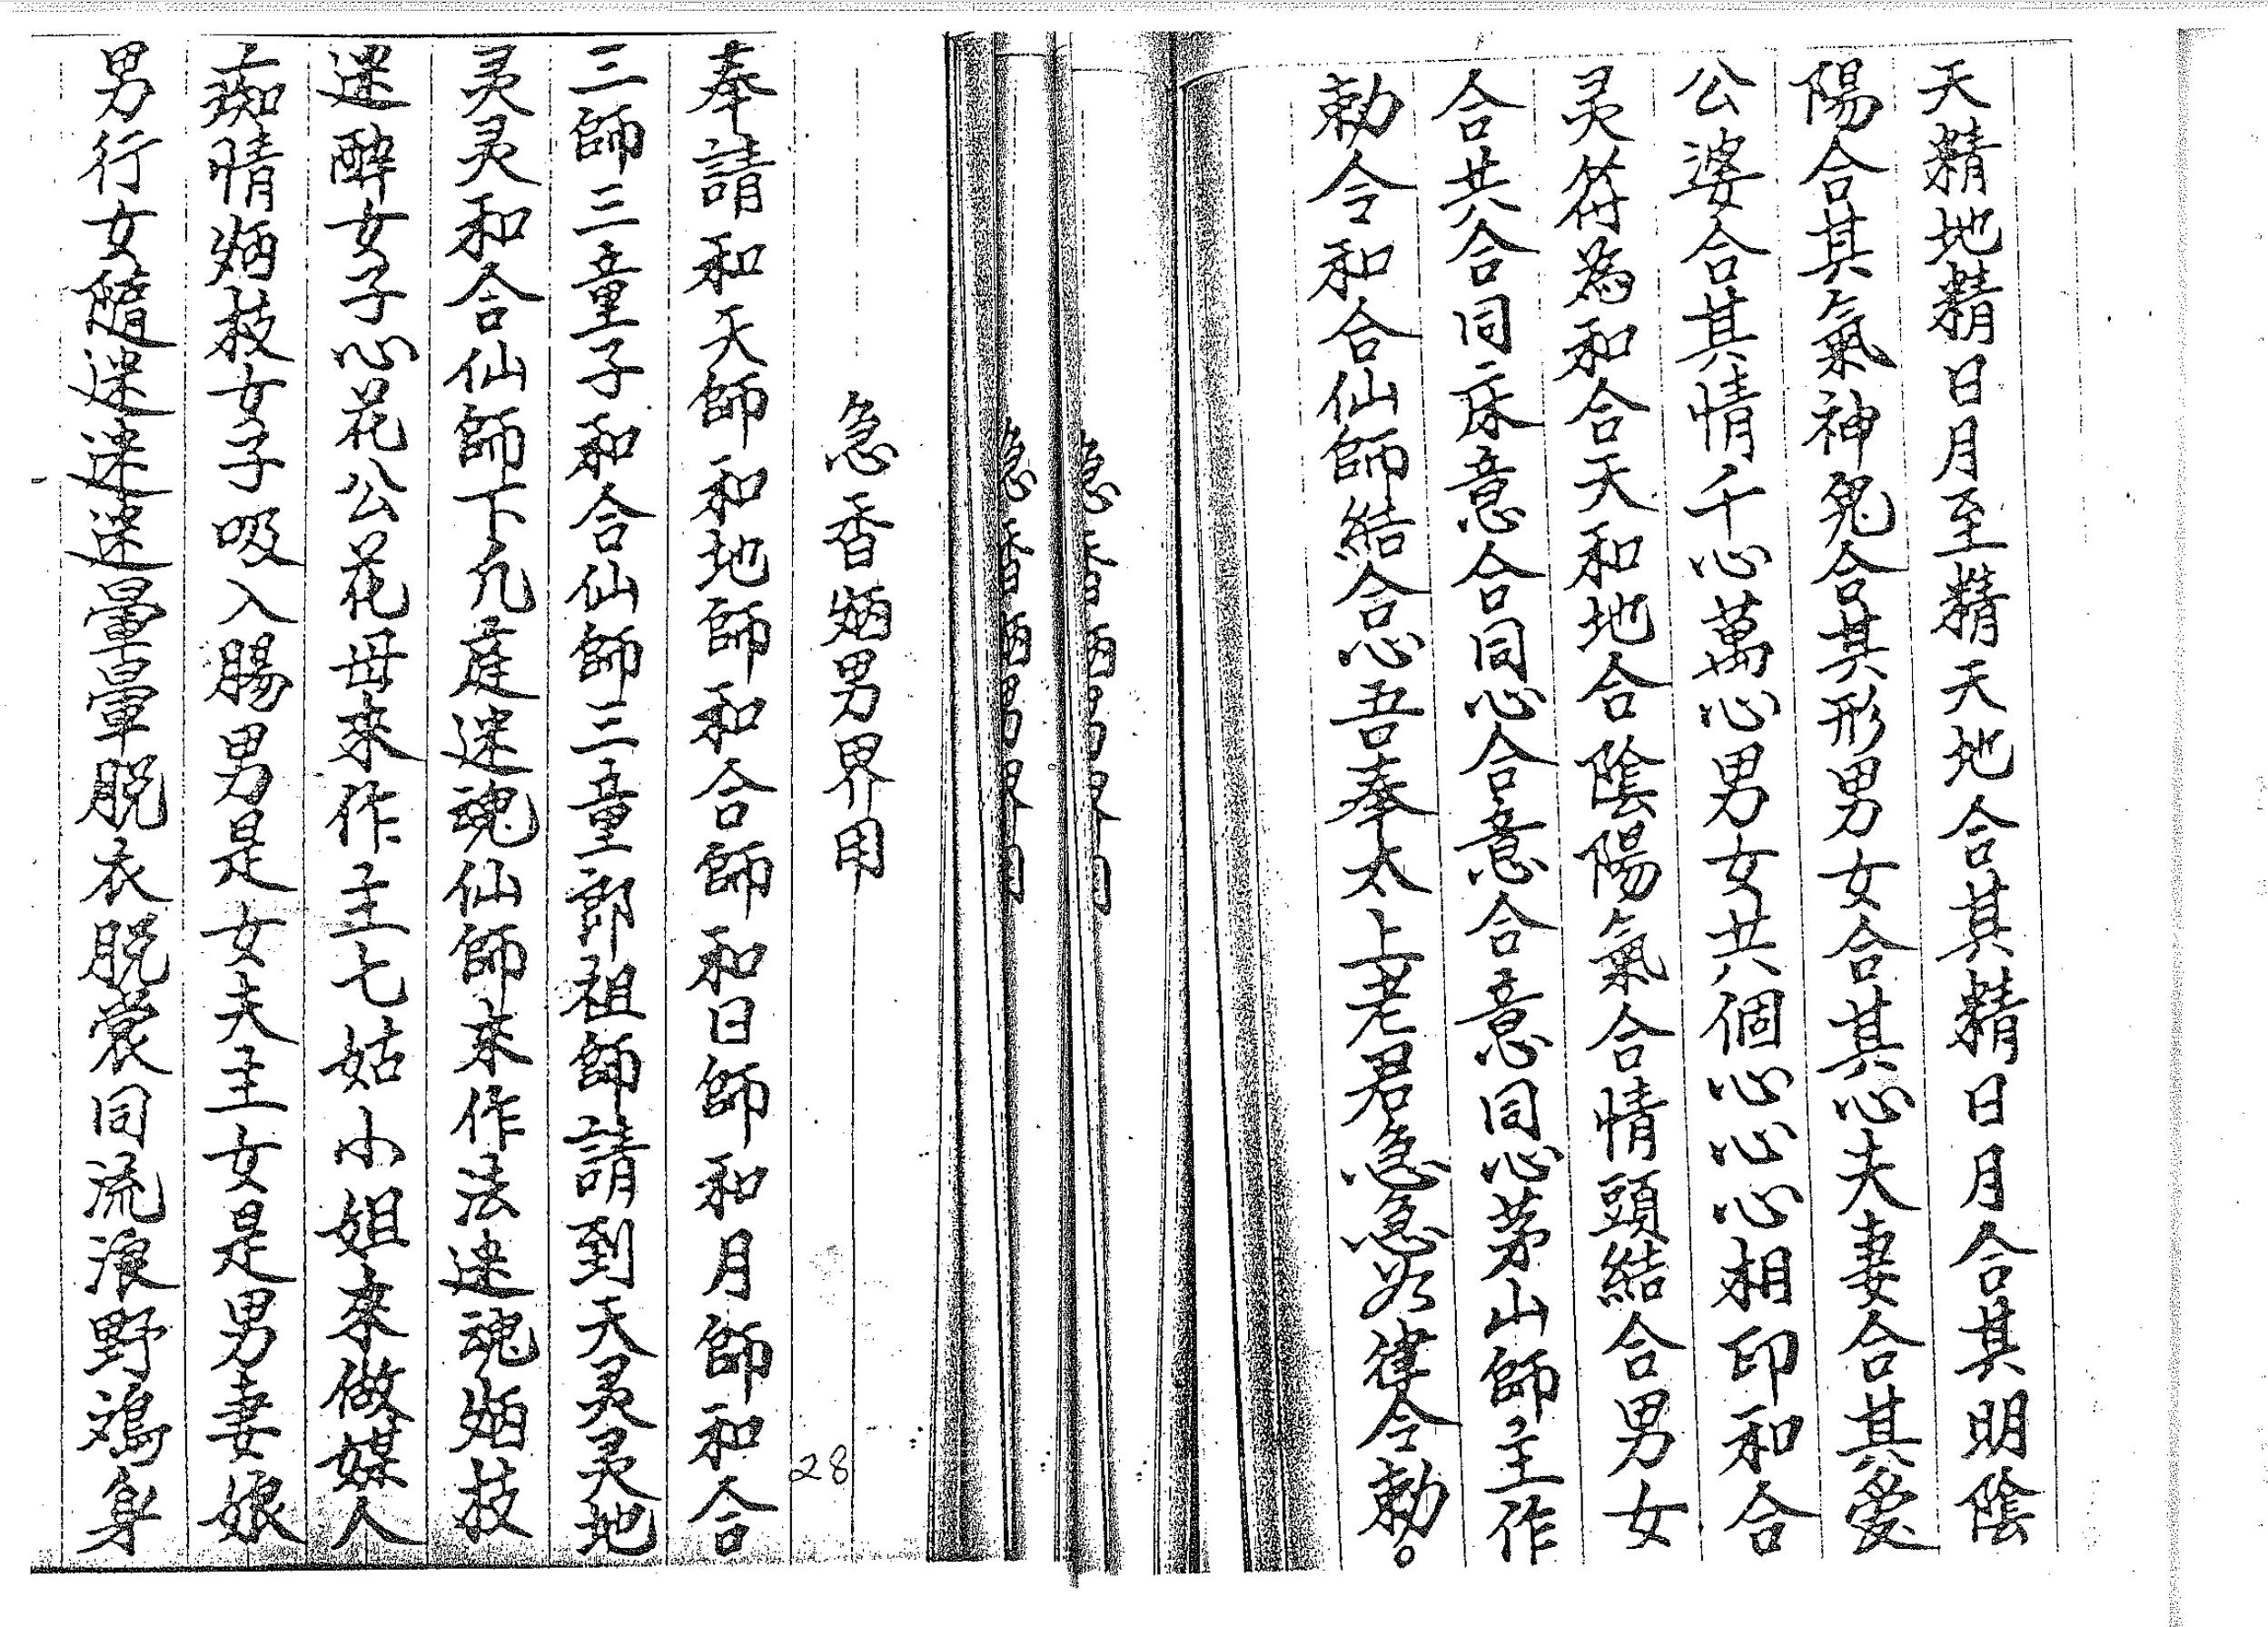 天精地精日月至精天地合其精日月合其明陰
陽合其氣神鬼合其形男女合其心夫妻合其愛
公婆合其情千心萬心男女共個心心心相印和合
灵符為和合天和地合陰陽氣合情頭結合男女
合共合同床意合同心合意合意同心茅山師主作
勅令和合仙師結合心吾奉太上老君急急如律令勅。
急香㛐男界用
奉請和天師和地師和合師和日師和月師和合
三師三童子和合仙師三童郎祖師請到天灵灵地
灵灵和合仙師下凡庭迷魂仙師來作法迷魂㛐技
迷醉女子心花公花母來作主七姑小姐來做媒人
痴情㛐技女子吸入腸男是女夫主女是男妻娘
男行女隨迷迷迷暈暈脱衣脱裳同流浪野鴻身
28